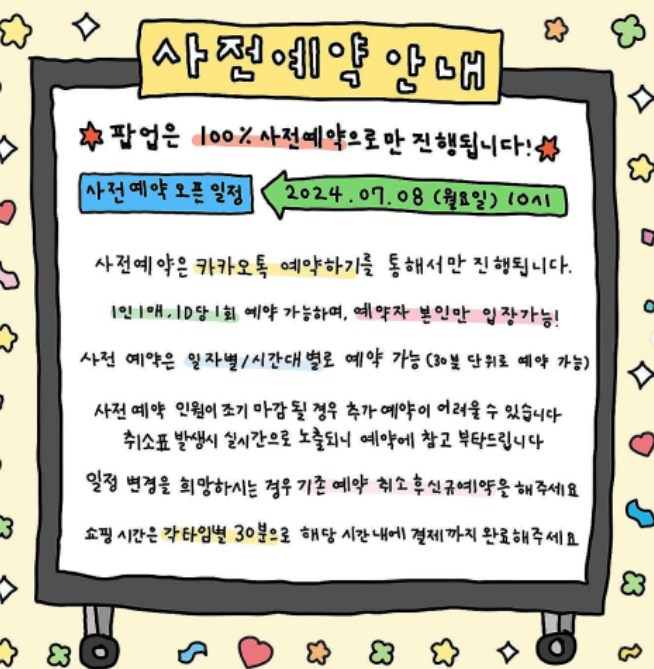 사전예약 안내
팝업은 100% 사전예약으로만 진행됩니다!
사전예약 오픈 일정 2024.07.08 (월요일) 10시
사전예약은 카카오톡 예약하기를 통해서만 진행됩니다.
1인 1매, ID당 1회 예약 가능하며, 예약자 본인만 입장가능!
사전 예약은 일자별/시간대별로 예약 가능 (30분 단위로 예약 가능)
사전 예약 인원이 조기 마감될 경우 추가 예약이 어려울 수 있습니다
취소표 발생시 실시간으로 노출되니 예약에 참고 부탁드립니다
일정 변경을 희망하시는 경우 기존 예약 취소 후 신규예약을 해주세요
쇼핑 시간은 각 타임별 30분으로 해당 시간 내에 결제까지 완료해주세요